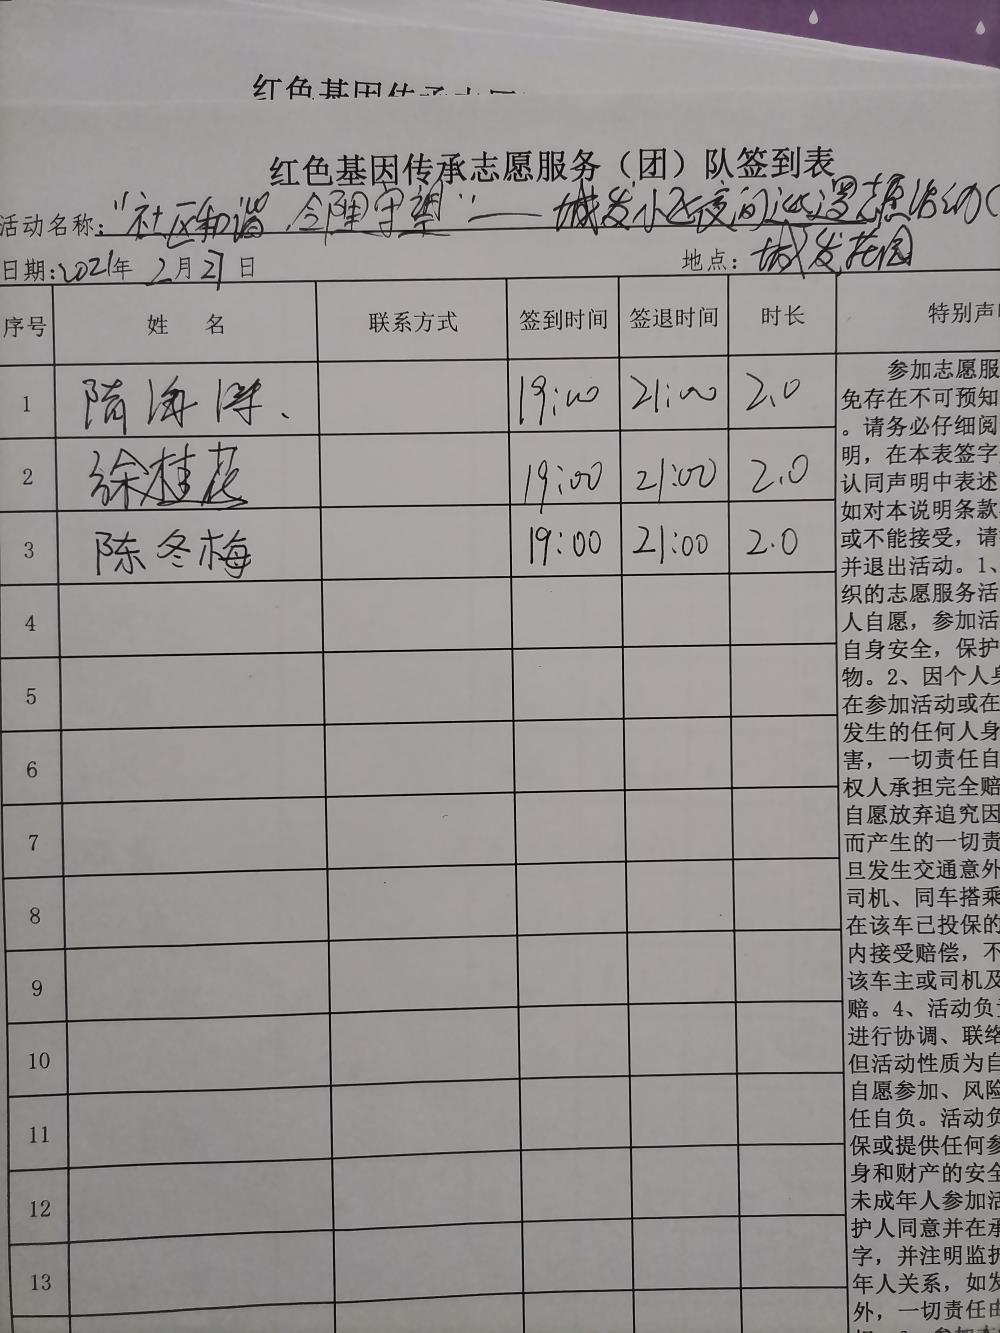 红色基因传承志愿
红色基因传承志愿服务（团）队签到表
活动名称："社区和谐 邻里守望"——城发小区夜间巡逻志愿活动（
日期：2021年 2月27日 地点：城发花园
序号 姓 名 联系方式 签到时间 签退时间 时长 特别声明
1 隋海 19:00 21:00 2.0
2 徐桂花 19:00 21:00 2.0
3 陈冬梅 19:00 21:00 2.0
4
5
6
7
8
9
10
11
12
13
参加志愿服
免存在不可预知
。请务必仔细阅
明，在本表签字
认同声明中表述
如对本说明条款
或不能接受，请
并退出活动。1、
织的志愿服务活
人自愿，参加活
自身安全，保护
物。2、因个人身
在参加活动或在
发生的任何人身
害，一切责任自
权人承担完全赔
自愿放弃追究因
而产生的一切责
旦发生交通意外
司机、同车搭乘
在该车已投保的
内接受赔偿，不
该车主或司机及
赔。4、活动负责
进行协调、联络
但活动性质为自
自愿参加、风险
任自负。活动负
保或提供任何参
身和财产的安全
未成年人参加活
护人同意并在承
字，并注明监护
年人关系，如发
外，一切责任由